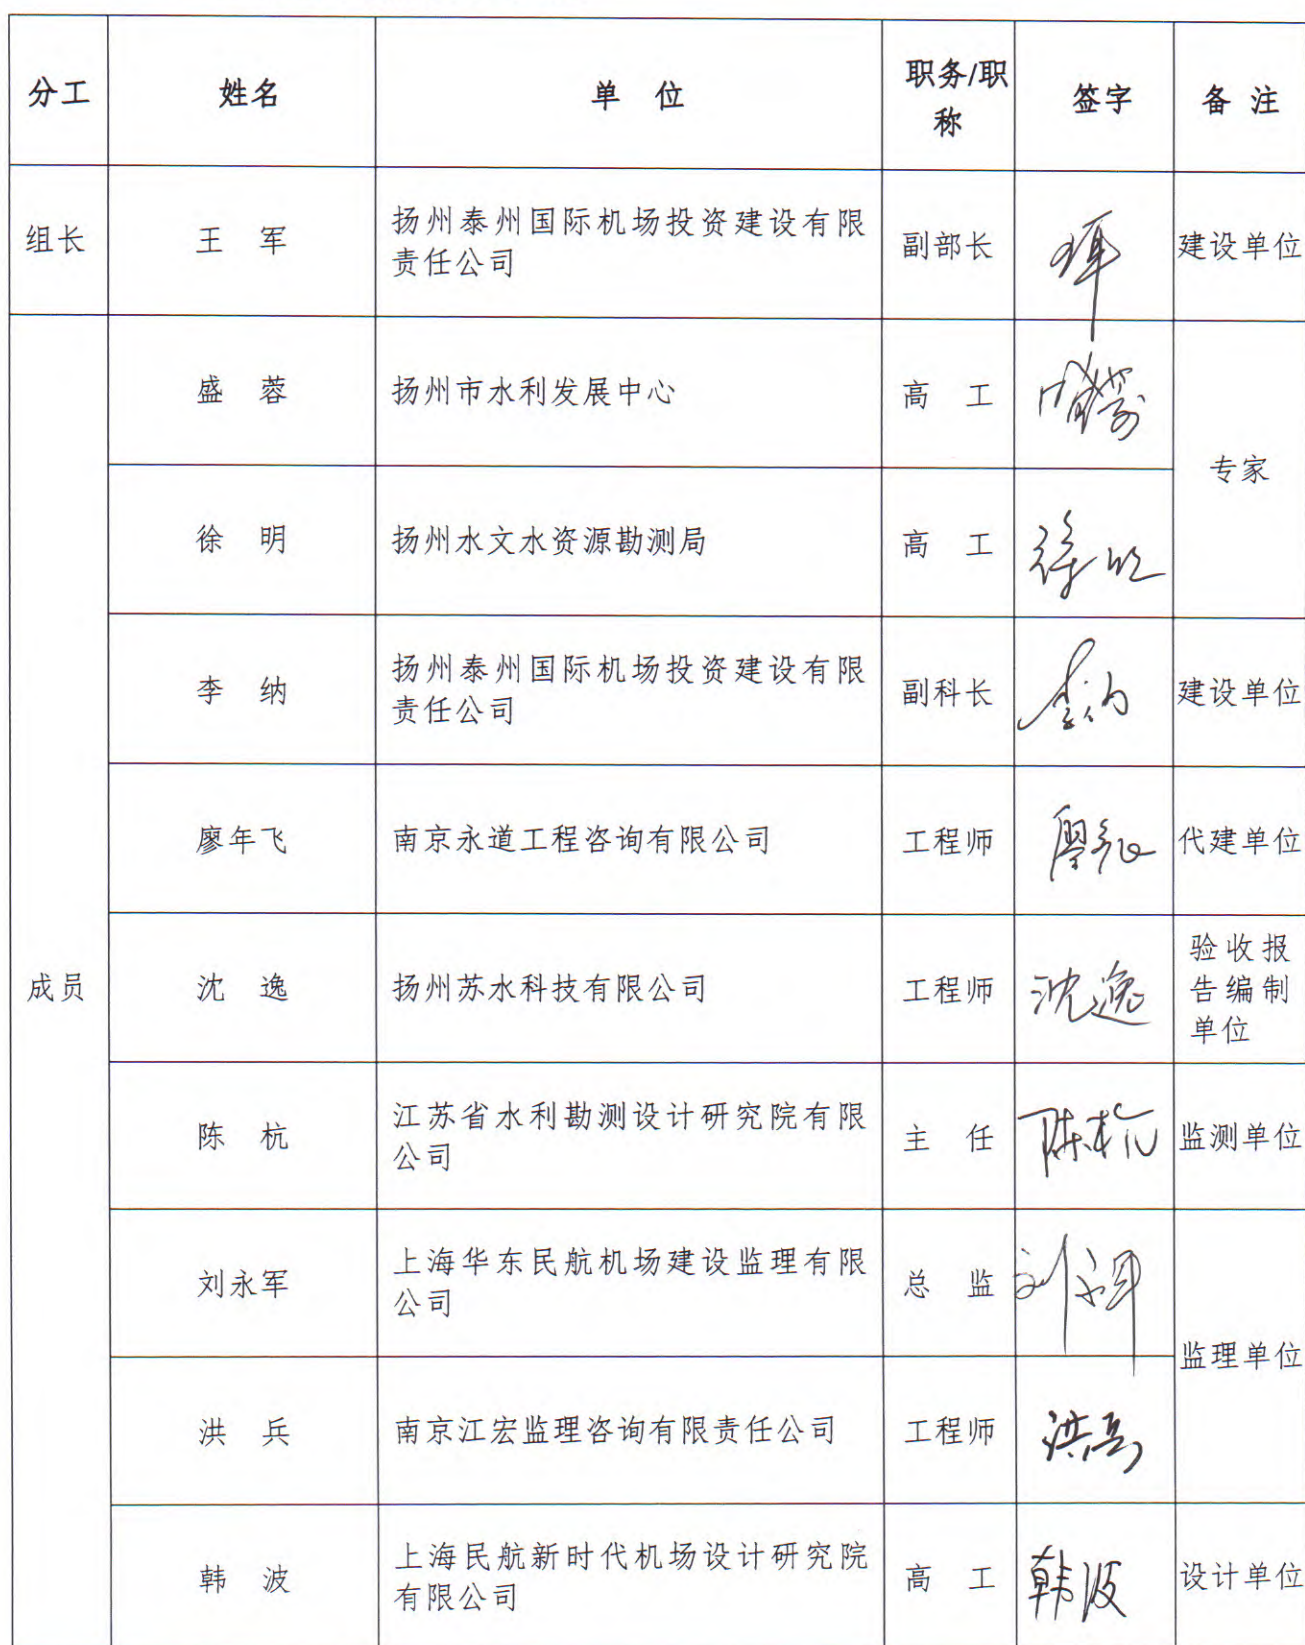 分工 姓名 单 位 职务/职称 签字 备 注
组长 王 军 扬州泰州国际机场投资建设有限 副部长 王军 建设单位
责任公司
成员
盛 蓉 扬州市水利发展中心 高 工 盛蓉
专家
徐 明 扬州水文水资源勘测局 高 工 徐明
李 纳 扬州泰州国际机场投资建设有限 副科长 李纳 建设单位
责任公司
廖年飞 南京永道工程咨询有限公司 工程师 代建单位
沈 逸 扬州苏水科技有限公司 工程师 沈逸 验收报
告编制
单位
陈 杭 江苏省水利勘测设计研究院有限 主 任 陈杭 监测单位
公司
刘永军 上海华东民航机场建设监理有限 总 监 刘永军
公司
监理单位
洪 兵 南京江宏监理咨询有限责任公司 工程师 洪兵
韩 波 上海民航新时代机场设计研究院 高 工 韩波 设计单位
有限公司